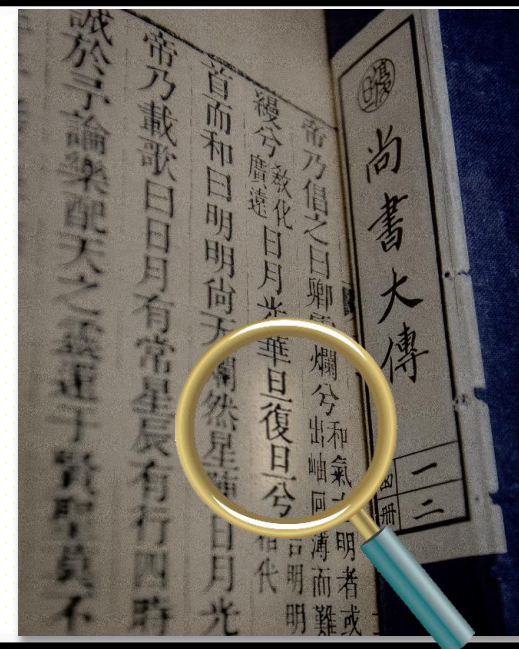 尚書大傳
一
二
冊
帝乃倡之曰卿雲爛兮和氣明者或
出岫回薄而難
縵兮教化廣遠日月光華旦復旦兮言明明相代
首而和曰明明尚天爛然星陳日月光
帝乃載歌曰日月有常星辰有行四時
誠於予論樂配天之靈遷于賢聖莫不